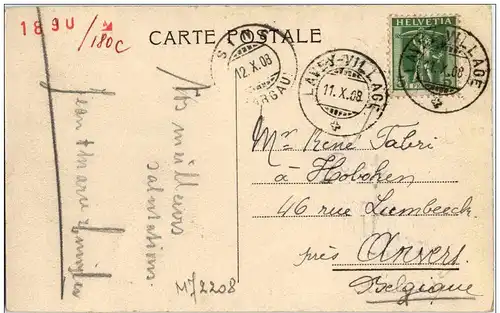 1890
/180c
CARTE POSTALE
HELVETIA
12.X.08
ARGAU
LAVEY-VILLAGE
11.X.08
LAVEY-VILLAGE
X.08
Mr René Fabri
à Hoboken
46 rue
près Anvers
Belgique
meilleures
salutations
Jean
M72208